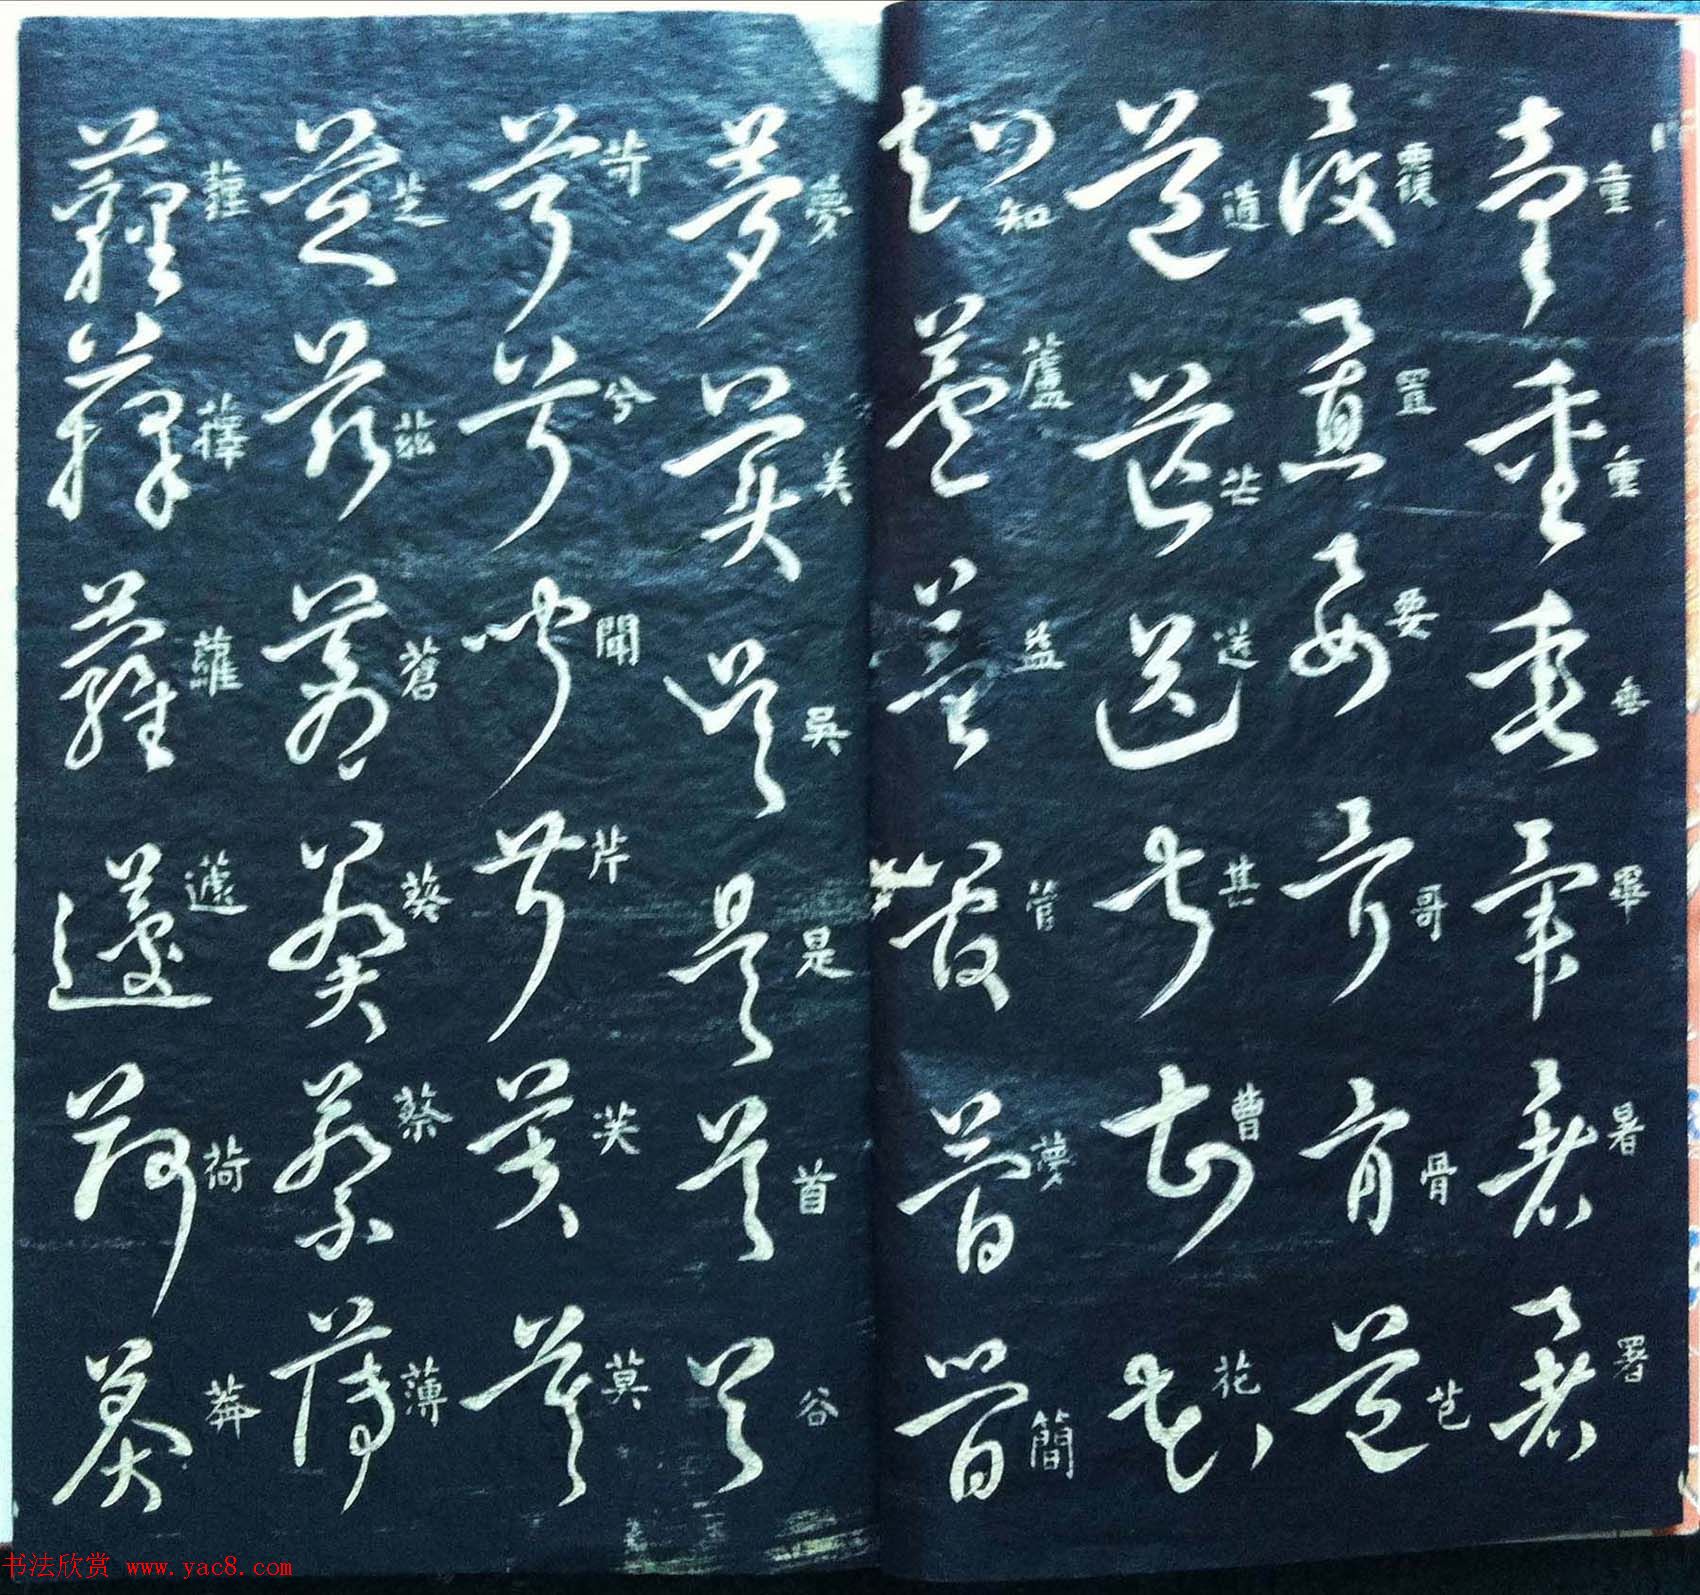 童 重 垂 畢 暑 署
覆 置 要 哥 骨 芭
道 芒 送 甚 曹 花
知 蘆 益 管 夢 簡
夢 美 吳 是 首 谷
兮 聞 芹 芙 莫
芝 茲 蒼 葵 蔡 薄
蘿 蘧 荷 莽
书法欣赏 www.yac8.com